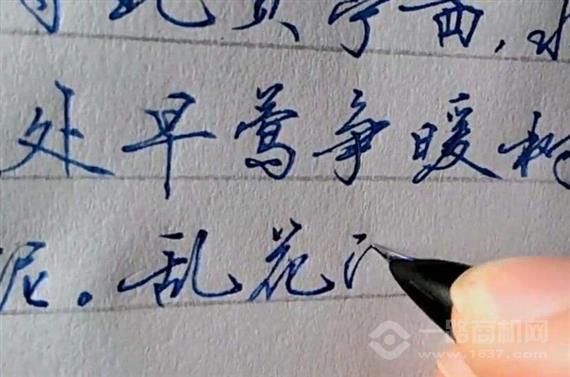 寺北贾亭西,水
处早莺争暖树
泥。乱花
一路商机网
www.1637.com